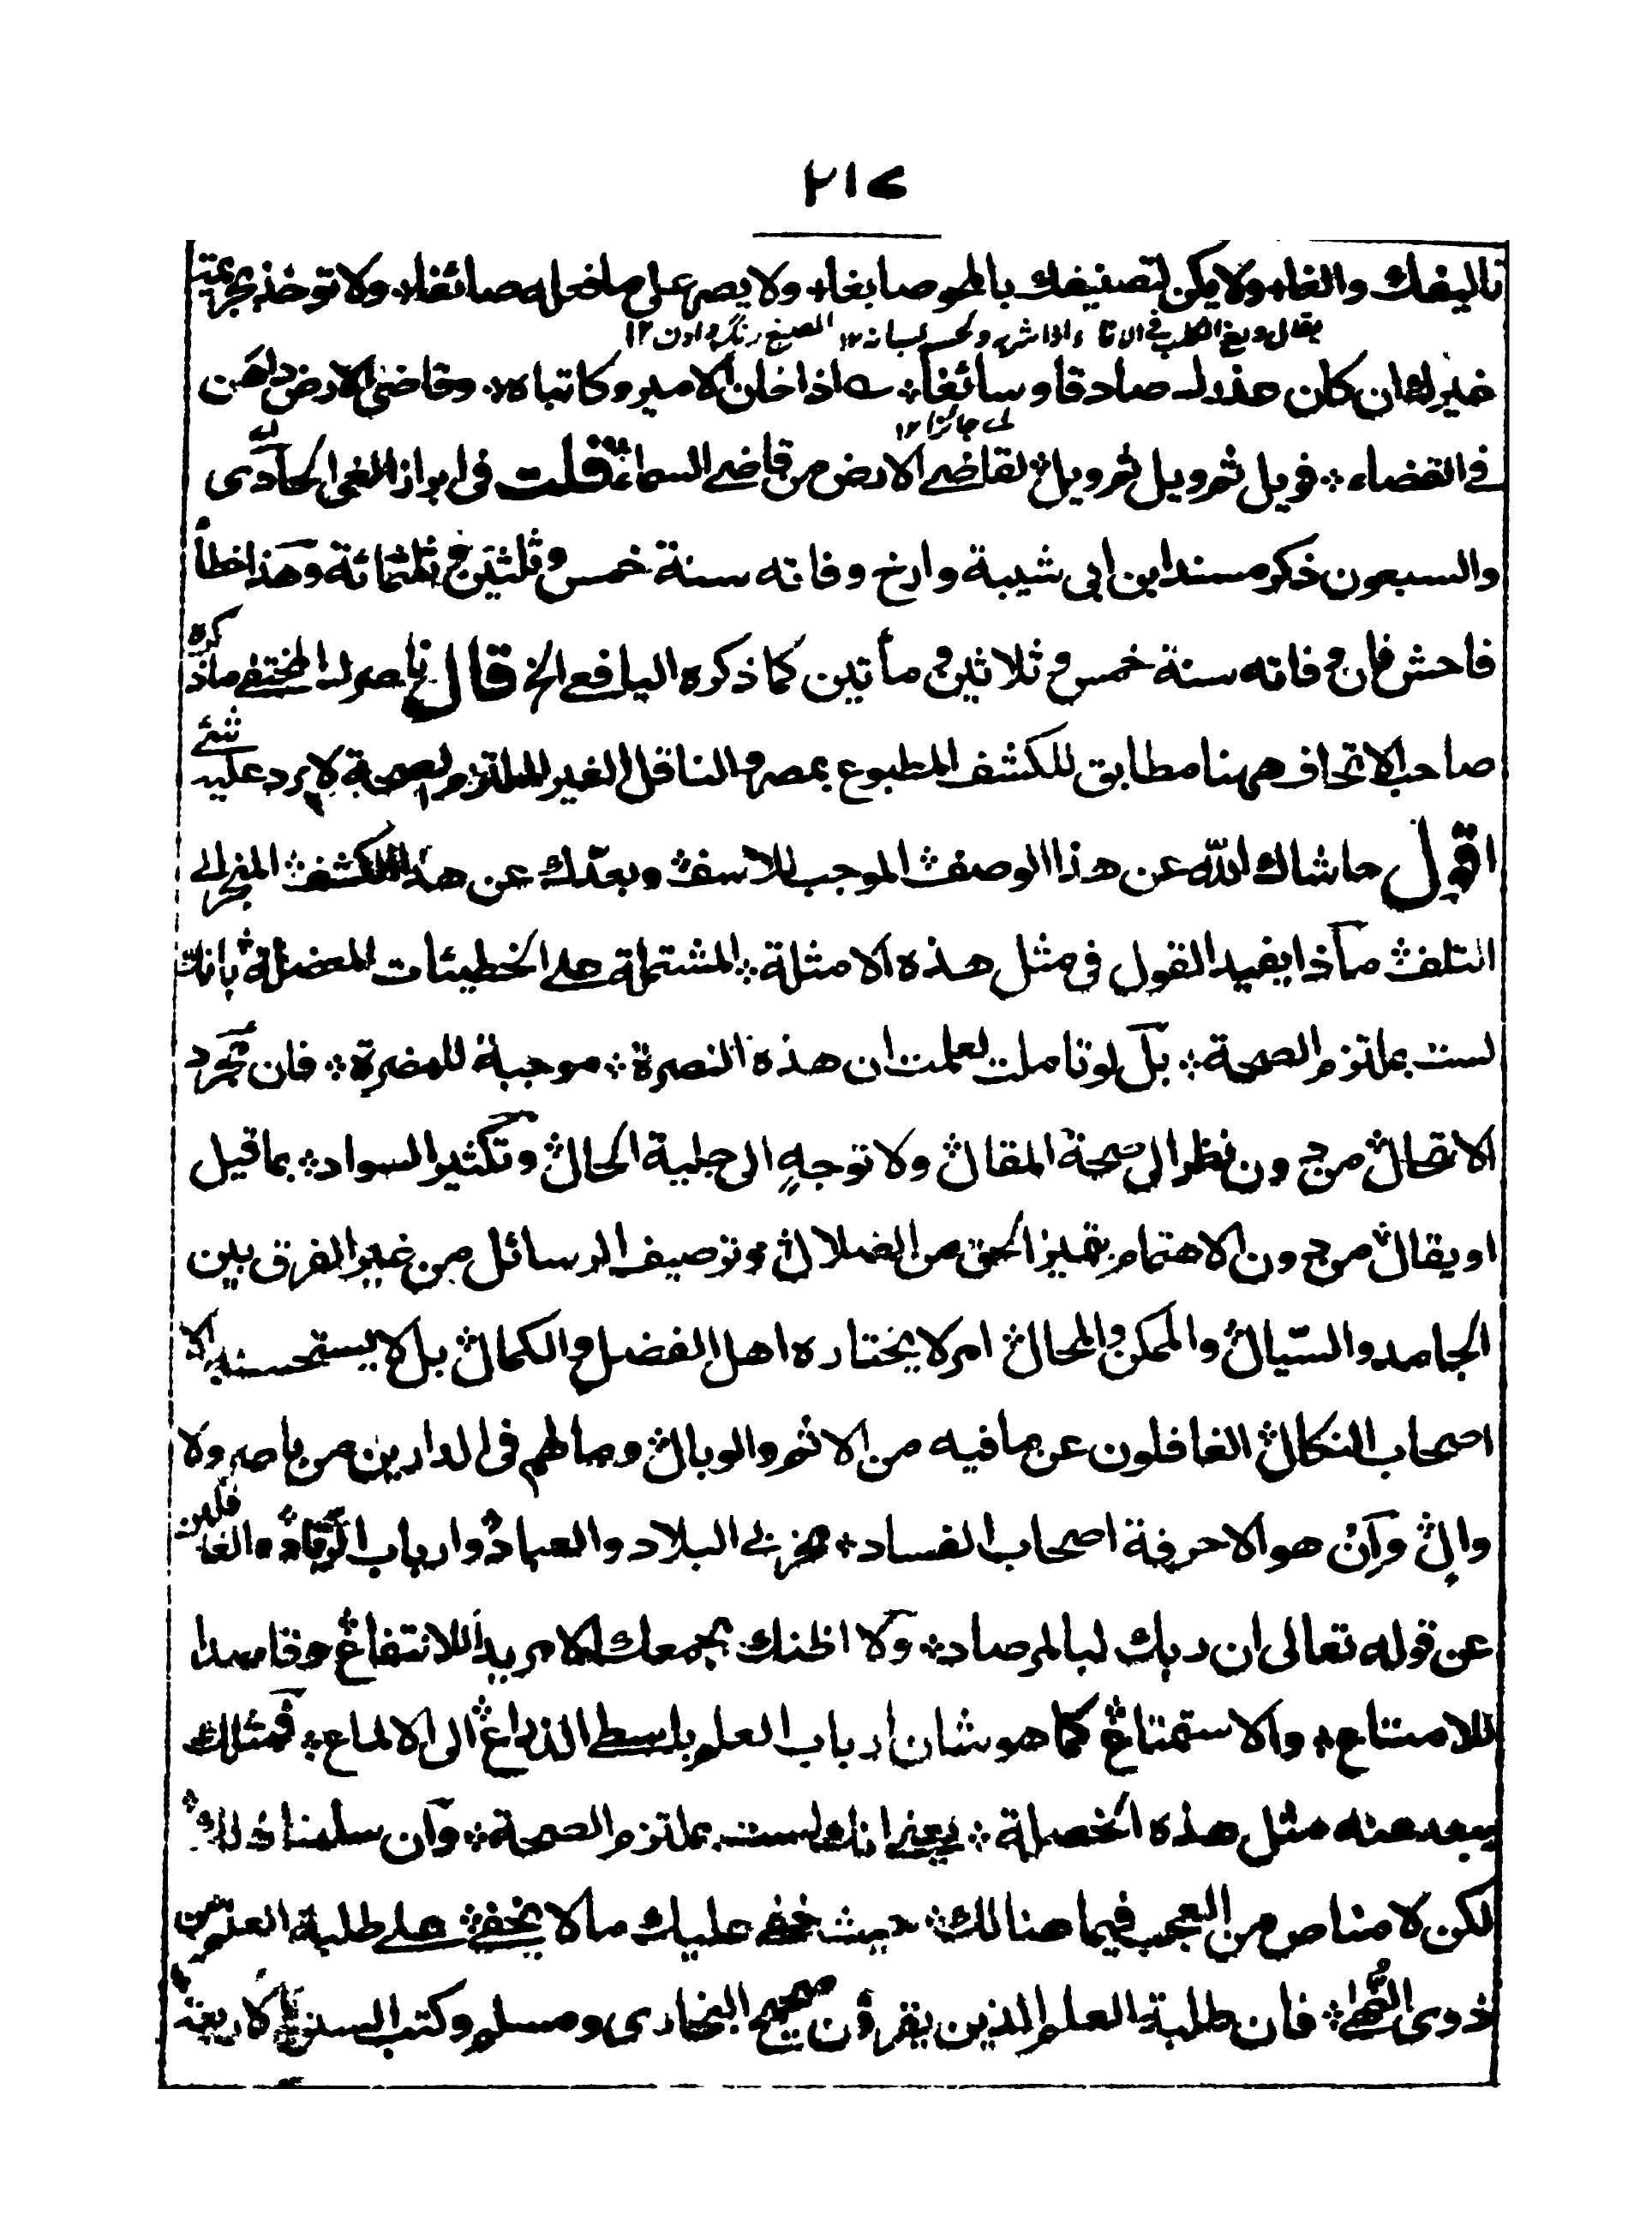 ٢١٧
تاليفك والغا ولا يكن لتصنيفك بالمحو صابغا ولا يصر على ما فعل صائغا ولا توخذ بجريمة
يقال ولغ الكلب في الاناء اذا شرب بلسانه ١٢ الصبغ رنگ دادن ١٢
غيرك ان كان عذرك صادقا وسائغا ؎ اذا خان الامير وكاتباه وقاضي الارض داهن
اے جائزا ١٢
في القضاء فويل ثم ويل ثم ويل لقاضي الارض من قاضي السماء قلت في ابراز الغي الحادي
والسبعون ذكر مسند ابن ابي شيبة وارخ وفاته سنة خمس وثلثين وثلثمائة وهذا خطأ
فاحش فان وفاته سنة خمس وثلاثين ومأتين كما ذكره اليافعي الخ قال ناصرك المختفي ما ذكره
صاحب الاتحاف ههنا مطابق للكشف المطبوع بمصر والناقل الغير الملتزم لصحة لا يرد عليه شئ
اقول حاشاك الله عن هذا الوصف الموجب للاسف وبعدك عن هذا الكشف المنجر الى
التلف ماذا يفيد القول في مثل هذه الامثلة المشتملة على الخطيئات المعضلة بانك
لست بملتزم الصحة بل لو تاملت لعلمت ان هذه النصرة موجبة للمضرة فان مجرد
الانتحال من دون نظر الى صحة المقال ولا توجه الى جلية الحال وتكثير السواد بما قيل
او يقال من دون الاهتمام بتميز الحق من الضلال وتوصيف الرسائل من غير الفرق بين
الجامد والسيال والممكن والمحال امر لا يختاره اهل الفضل والكمال بل لا يستحسنه الا
اصحاب النكال الغافلون عن ما فيه من الاثم والوبال وما لهم في الدارين من ناصر ولا
وال وان هو الا حرفة اصحاب الفساد مخربي البلاد والعباد وارباب الرقاد الغافلين
عن قوله تعالى ان ربك لبالمرصاد ولا اظنك بجمعك الا مريدا للانتفاع وقاصدا
للامتناع والاستمتاع كما هو شان ارباب العلم باسطي الذراع الى الالماع فمثلك
يبعد عنه مثل هذه الخصلة يعني انك لست بملتزم الصحة وان سلمنا ذلك
لكن لا مناص من العجب فيما هنالك حيث خفي عليك ما لا يخفى على طلبة العلم من
ذوي النهى فان طلبة العلم الذين يقرؤن صحيح البخاري ومسلم وكتب السنن الاربعة